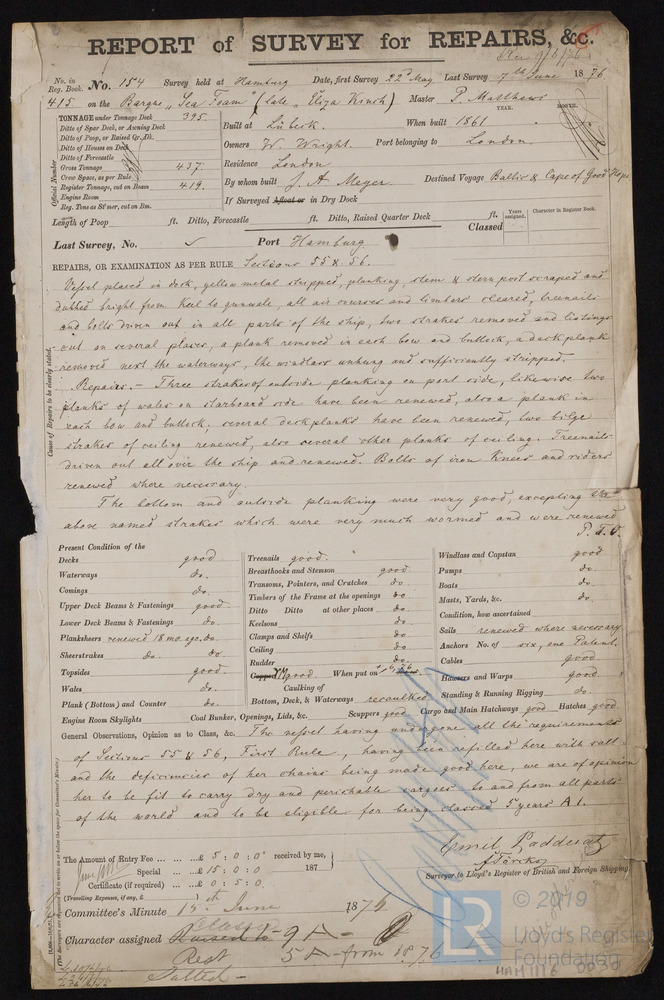 REPORT of SURVEY for REPAIRS, &c.
No. in Reg. Book. No. 154 Survey held at Hamburg Date, first Survey 22nd May Last Survey 7th June 1876
415 on the Barque "Sea Foam" (late "Eliza Kinch) Master P. Matthews
TONNAGE under Tonnage Deck 395.
Ditto of Spar Deck, or Awning Deck
Ditto of Poop, or Raised Qr. Dk.
Ditto of Houses on Deck
Ditto of Forecastle
Gross Tonnage 437.
Crew Space, as per Rule
Register Tonnage, cut on Beam 419.
Engine Room
Reg. Tons as St'mer, cut on Bm.
Official Number
YEAR. MONTH.
Built at Lübeck. When built 1861
Owners W. Wright. Port belonging to London.
Residence London
By whom built J. A. Meyer Destined Voyage Baltic & Cape of Good Hope
If Surveyed Afloat or in Dry Dock
Length of Poop ft. Ditto, Forecastle ft. Ditto, Raised Quarter Deck ft.
Classed Years assigned. Character in Register Book.
Last Survey, No. Port Hamburg
REPAIRS, OR EXAMINATION AS PER RULE Sections 55 & 56.
Vessel placed in dock, yellow metal stripped, planking, stem & stern post scraped and
dubbed bright from Keel to gunwale, all air courses and limbers cleared, treenails
and bolts driven out in all parts of the ship, two strakes removed and listings
out on several places, a plank removed in each bow and buttock, a deck plank
removed next the waterways, the windlass unhung and sufficiently stripped.
Repairs. – Three strakes of outside planking on port side, likewise two
planks of wales on starboard side have been renewed, also a plank in
each bow and buttock, several deckplanks have been renewed, two bilge
strakes of ceiling renewed, also several other planks of ceiling. Treenails
driven out all over the ship and renewed. Bolts of iron Knees and riders
renewed where necessary.
The bottom and outside planking were very good, excepting the
above named strakes which were very much wormed and were renewed
P.T.O.
Cause of Repairs to be clearly stated.
Present Condition of the
Decks good
Waterways do.
Comings do.
Upper Deck Beams & Fastenings good
Lower Deck Beams & Fastenings do.
Planksheers renewed 18 mo. ago. do.
Sheerstrakes do. do.
Topsides good.
Wales do.
Plank (Bottom) and Counter do.
Engine Room Skylights
Treenails good.
Breasthooks and Stemson good
Transoms, Pointers, and Crutches do
Timbers of the Frame at the openings do
Ditto Ditto at other places do.
Keelsons do.
Clamps and Shelfs do.
Ceiling do.
Rudder do.
Coppered YM good. When put on
Caulking of
Bottom, Deck, & Waterways recaulked
Coal Bunker, Openings, Lids, &c. Scuppers good
Windlass and Capstan good
Pumps do.
Boats do.
Masts, Yards, &c. do.
Condition, how ascertained
Sails renewed where necessary.
Anchors No. of six, one Patent.
Cables good
Hawsers and Warps good
Standing & Running Rigging do.
Cargo and Main Hatchways good Hatches good
General Observations, Opinion as to Class, &c. The vessel having undergone all the requirements
of Sections 55 & 56, First Rule, having been refilled here with salt
and the deficiencies of her chains being made good here, we are of opinion
her to be fit to carry dry and perishable cargoes to and from all parts
of the world and to be eligible for being classed 5 years A1.
The Amount of Entry Fee £ 5 : 0 : 0 received by me,
Special £ 15 : 0 : 0 187
Certificate (if required) £ 0 : 5 : 0.
(Travelling Expenses, if any, £
Surveyor to Lloyd's Register of British and Foreign Shipping
Committee's Minute 15th June 1876
Character assigned Raised to Class 9 A
Rest 5 A – from 1876
Salted –
LR © 2019
Lloyd's Register
Foundation
HAM 1116 0030